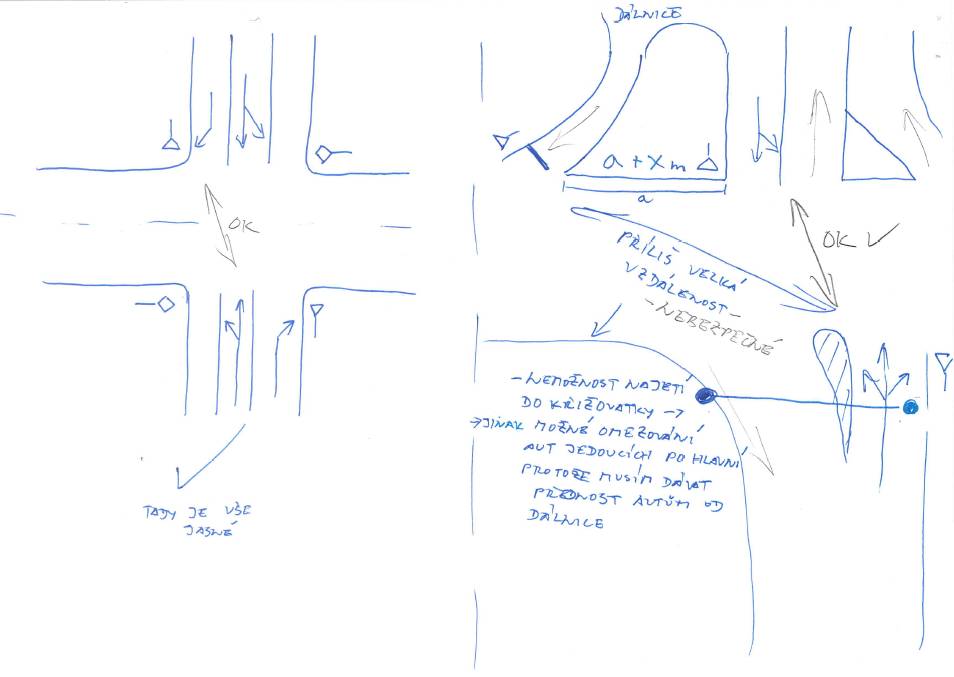 OK
TADY JE VŠE
JASNÉ
DÁLNICE
a + X m
a
OK
PŘÍLIŠ VELKÁ
VZDÁLENOST –
– NEBEZPEČNÉ
– NEMOŽNOST NAJETÍ
DO KŘIŽOVATKY →
→ JINAK MOŽNÉ OMEZOVÁNÍ
AUT JEDOUCÍCH PO HLAVNÍ
PROTOŽE MUSÍM DÁVAT
PŘEDNOST AUTŮM OD
DÁLNICE